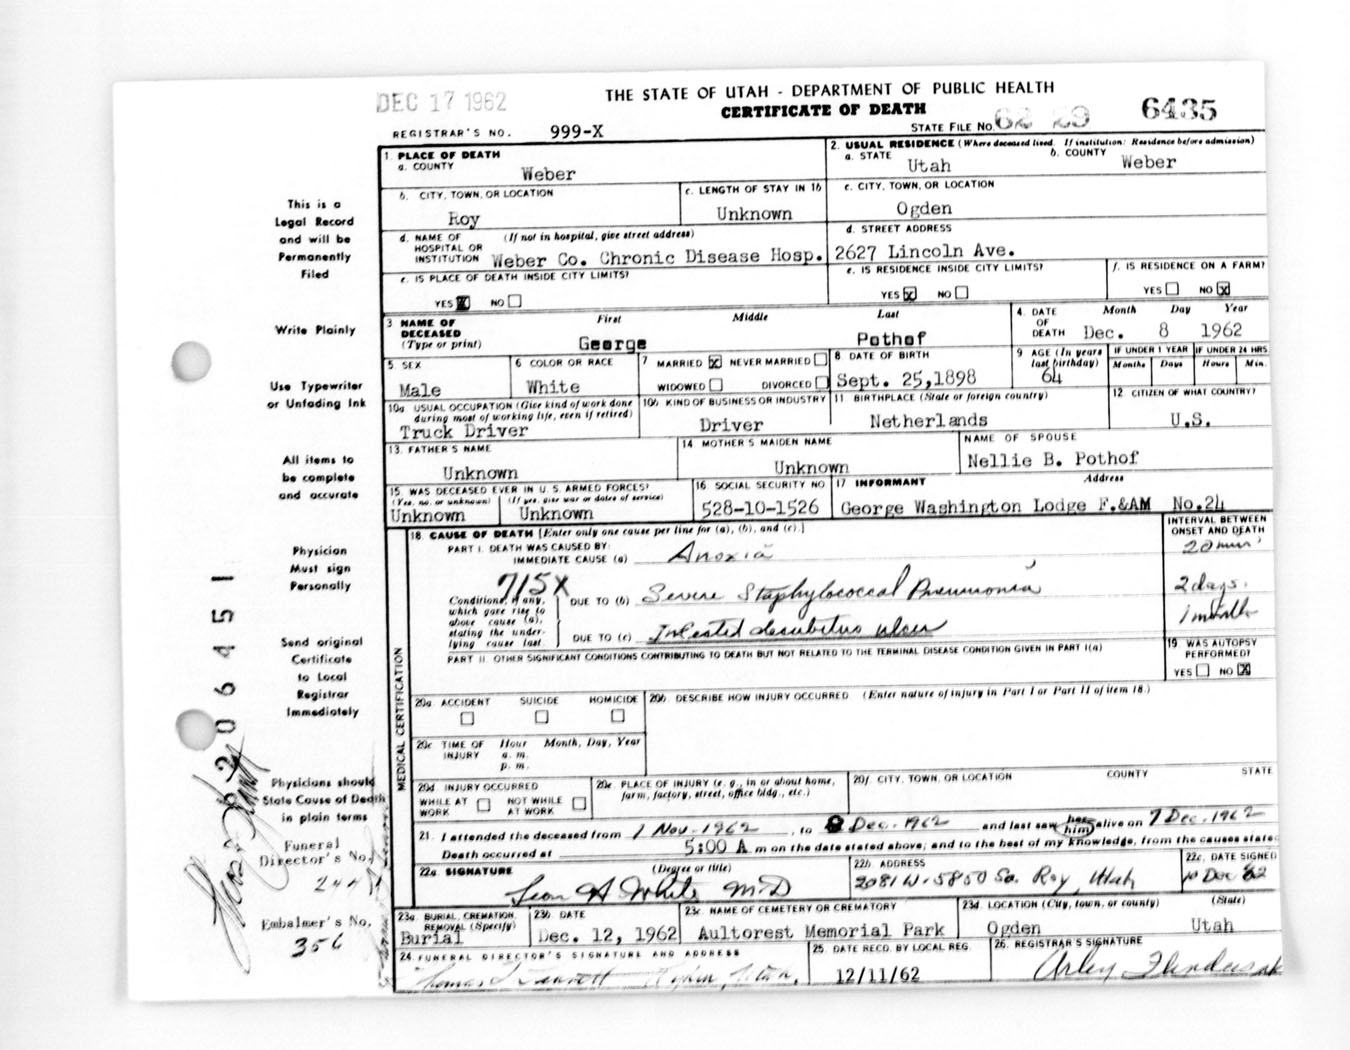 DEC 17 1962
THE STATE OF UTAH - DEPARTMENT OF PUBLIC HEALTH
CERTIFICATE OF DEATH
REGISTRAR'S NO. 999-X
STATE FILE NO. 62 29 6435
1. PLACE OF DEATH
a. COUNTY
Weber
2. USUAL RESIDENCE (Where deceased lived. If institution: Residence before admission)
a. STATE Utah b. COUNTY Weber
b. CITY, TOWN, OR LOCATION
Roy
c. LENGTH OF STAY IN 1b
Unknown
c. CITY, TOWN, OR LOCATION
Ogden
d. NAME OF HOSPITAL OR INSTITUTION (If not in hospital, give street address)
Weber Co. Chronic Disease Hosp.
d. STREET ADDRESS
2627 Lincoln Ave.
e. IS PLACE OF DEATH INSIDE CITY LIMITS?
YES X NO
e. IS RESIDENCE INSIDE CITY LIMITS?
YES X NO
f. IS RESIDENCE ON A FARM?
YES NO X
3 NAME OF DECEASED (Type or print)
First Middle Last
George Pothof
4. DATE OF DEATH Month Day Year
Dec. 8 1962
5. SEX
Male
6 COLOR OR RACE
White
7 MARRIED X NEVER MARRIED
WIDOWED DIVORCED
8 DATE OF BIRTH
Sept. 25,1898
9 AGE (In years last birthday)
64
IF UNDER 1 YEAR
Months Days
IF UNDER 24 HRS.
Hours Min.
10a USUAL OCCUPATION (Give kind of work done during most of working life, even if retired)
Truck Driver
10b KIND OF BUSINESS OR INDUSTRY
Driver
11 BIRTHPLACE (State or foreign country)
Netherlands
12 CITIZEN OF WHAT COUNTRY?
U.S.
13. FATHER'S NAME
Unknown
14 MOTHER'S MAIDEN NAME
Unknown
NAME OF SPOUSE
Nellie B. Pothof
15. WAS DECEASED EVER IN U.S. ARMED FORCES?
(Yes, no, or unknown) (If yes, give war or dates of service)
Unknown Unknown
16. SOCIAL SECURITY NO
528-10-1526
17 INFORMANT Address
George Washington Lodge F.&AM No.24
18. CAUSE OF DEATH [Enter only one cause per line for (a), (b), and (c).]
INTERVAL BETWEEN ONSET AND DEATH
PART I. DEATH WAS CAUSED BY:
IMMEDIATE CAUSE (a) Anoxia 20 min
715X
Conditions, if any, which gave rise to above cause (a), stating the underlying cause last
DUE TO (b) Severe Staphylococcal Pneumonia 2 days.
DUE TO (c) Infested decubitus ulcer 1 month
PART II. OTHER SIGNIFICANT CONDITIONS CONTRIBUTING TO DEATH BUT NOT RELATED TO THE TERMINAL DISEASE CONDITION GIVEN IN PART I(a)
19 WAS AUTOPSY PERFORMED?
YES NO X
MEDICAL CERTIFICATION
20a. ACCIDENT SUICIDE HOMICIDE
20b. DESCRIBE HOW INJURY OCCURRED (Enter nature of injury in Part I or Part II of item 18.)
20c TIME OF INJURY Hour Month, Day, Year
a. m.
p. m.
20d INJURY OCCURRED
WHILE AT WORK NOT WHILE AT WORK
20e. PLACE OF INJURY (e. g., in or about home, farm, factory, street, office bldg., etc.)
20f. CITY, TOWN, OR LOCATION COUNTY STATE
21. I attended the deceased from 1 Nov. 1962, to 8 Dec. 1962 and last saw her him alive on 7 Dec. 1962
Death occurred at 5:00 A m on the date stated above; and to the best of my knowledge, from the causes stated
22a SIGNATURE (Degree or title)
Leon H White MD
22b ADDRESS
2081 W. 5850 So. Roy, Utah
22c. DATE SIGNED
10 Dec 62
23a. BURIAL, CREMATION, REMOVAL (Specify)
Burial
23b DATE
Dec. 12, 1962
23c NAME OF CEMETERY OR CREMATORY
Aultorest Memorial Park
23d. LOCATION (City, town, or county) (State)
Ogden Utah
24. FUNERAL DIRECTOR'S SIGNATURE AND ADDRESS
25. DATE RECD. BY LOCAL REG.
12/11/62
26. REGISTRAR'S SIGNATURE
This is a
Legal Record
and will be
Permanently
Filed
Write Plainly
Use Typewriter
or Unfading Ink
All items to
be complete
and accurate
Physician
Must sign
Personally
Send original
Certificate
to Local
Registrar
Immediately
Physicians should
State Cause of Death
in plain terms
Funeral
Director's No.
244
Embalmer's No.
356
62 206451